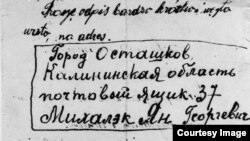 Proszę odpis bardzo
na adres.
Город Осташков
Калининская область
почтовый ящик 37
Михалэк Ян Георгевич
Courtesy Image